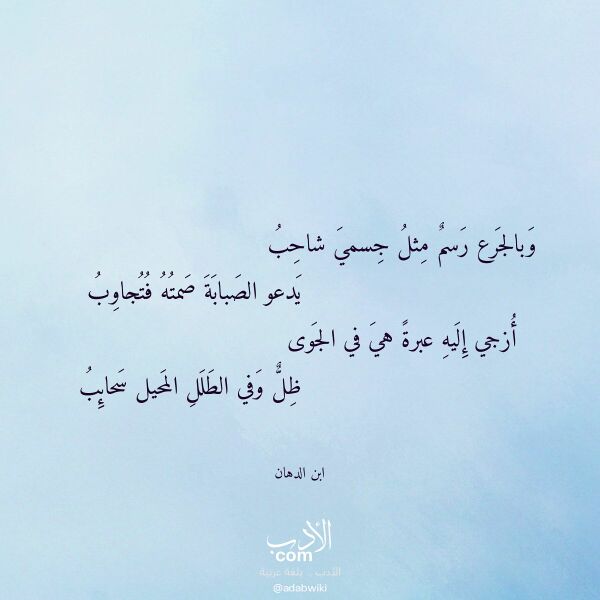 وَبالجَرع رَسمٌ مِثلُ جِسميَ شاحِبُ
يَدعو الصَبابَةَ صَمتُهُ فُتُجاوِبُ
أُزجي إِلَيهِ عبرةً هيَ في الجَوى
ظِلٌّ وَفي الطَلَلِ المَحيل سَحائِبُ
ابن الدهان
الأدب
com
الأدب .. بلغة عربية
@adabwiki